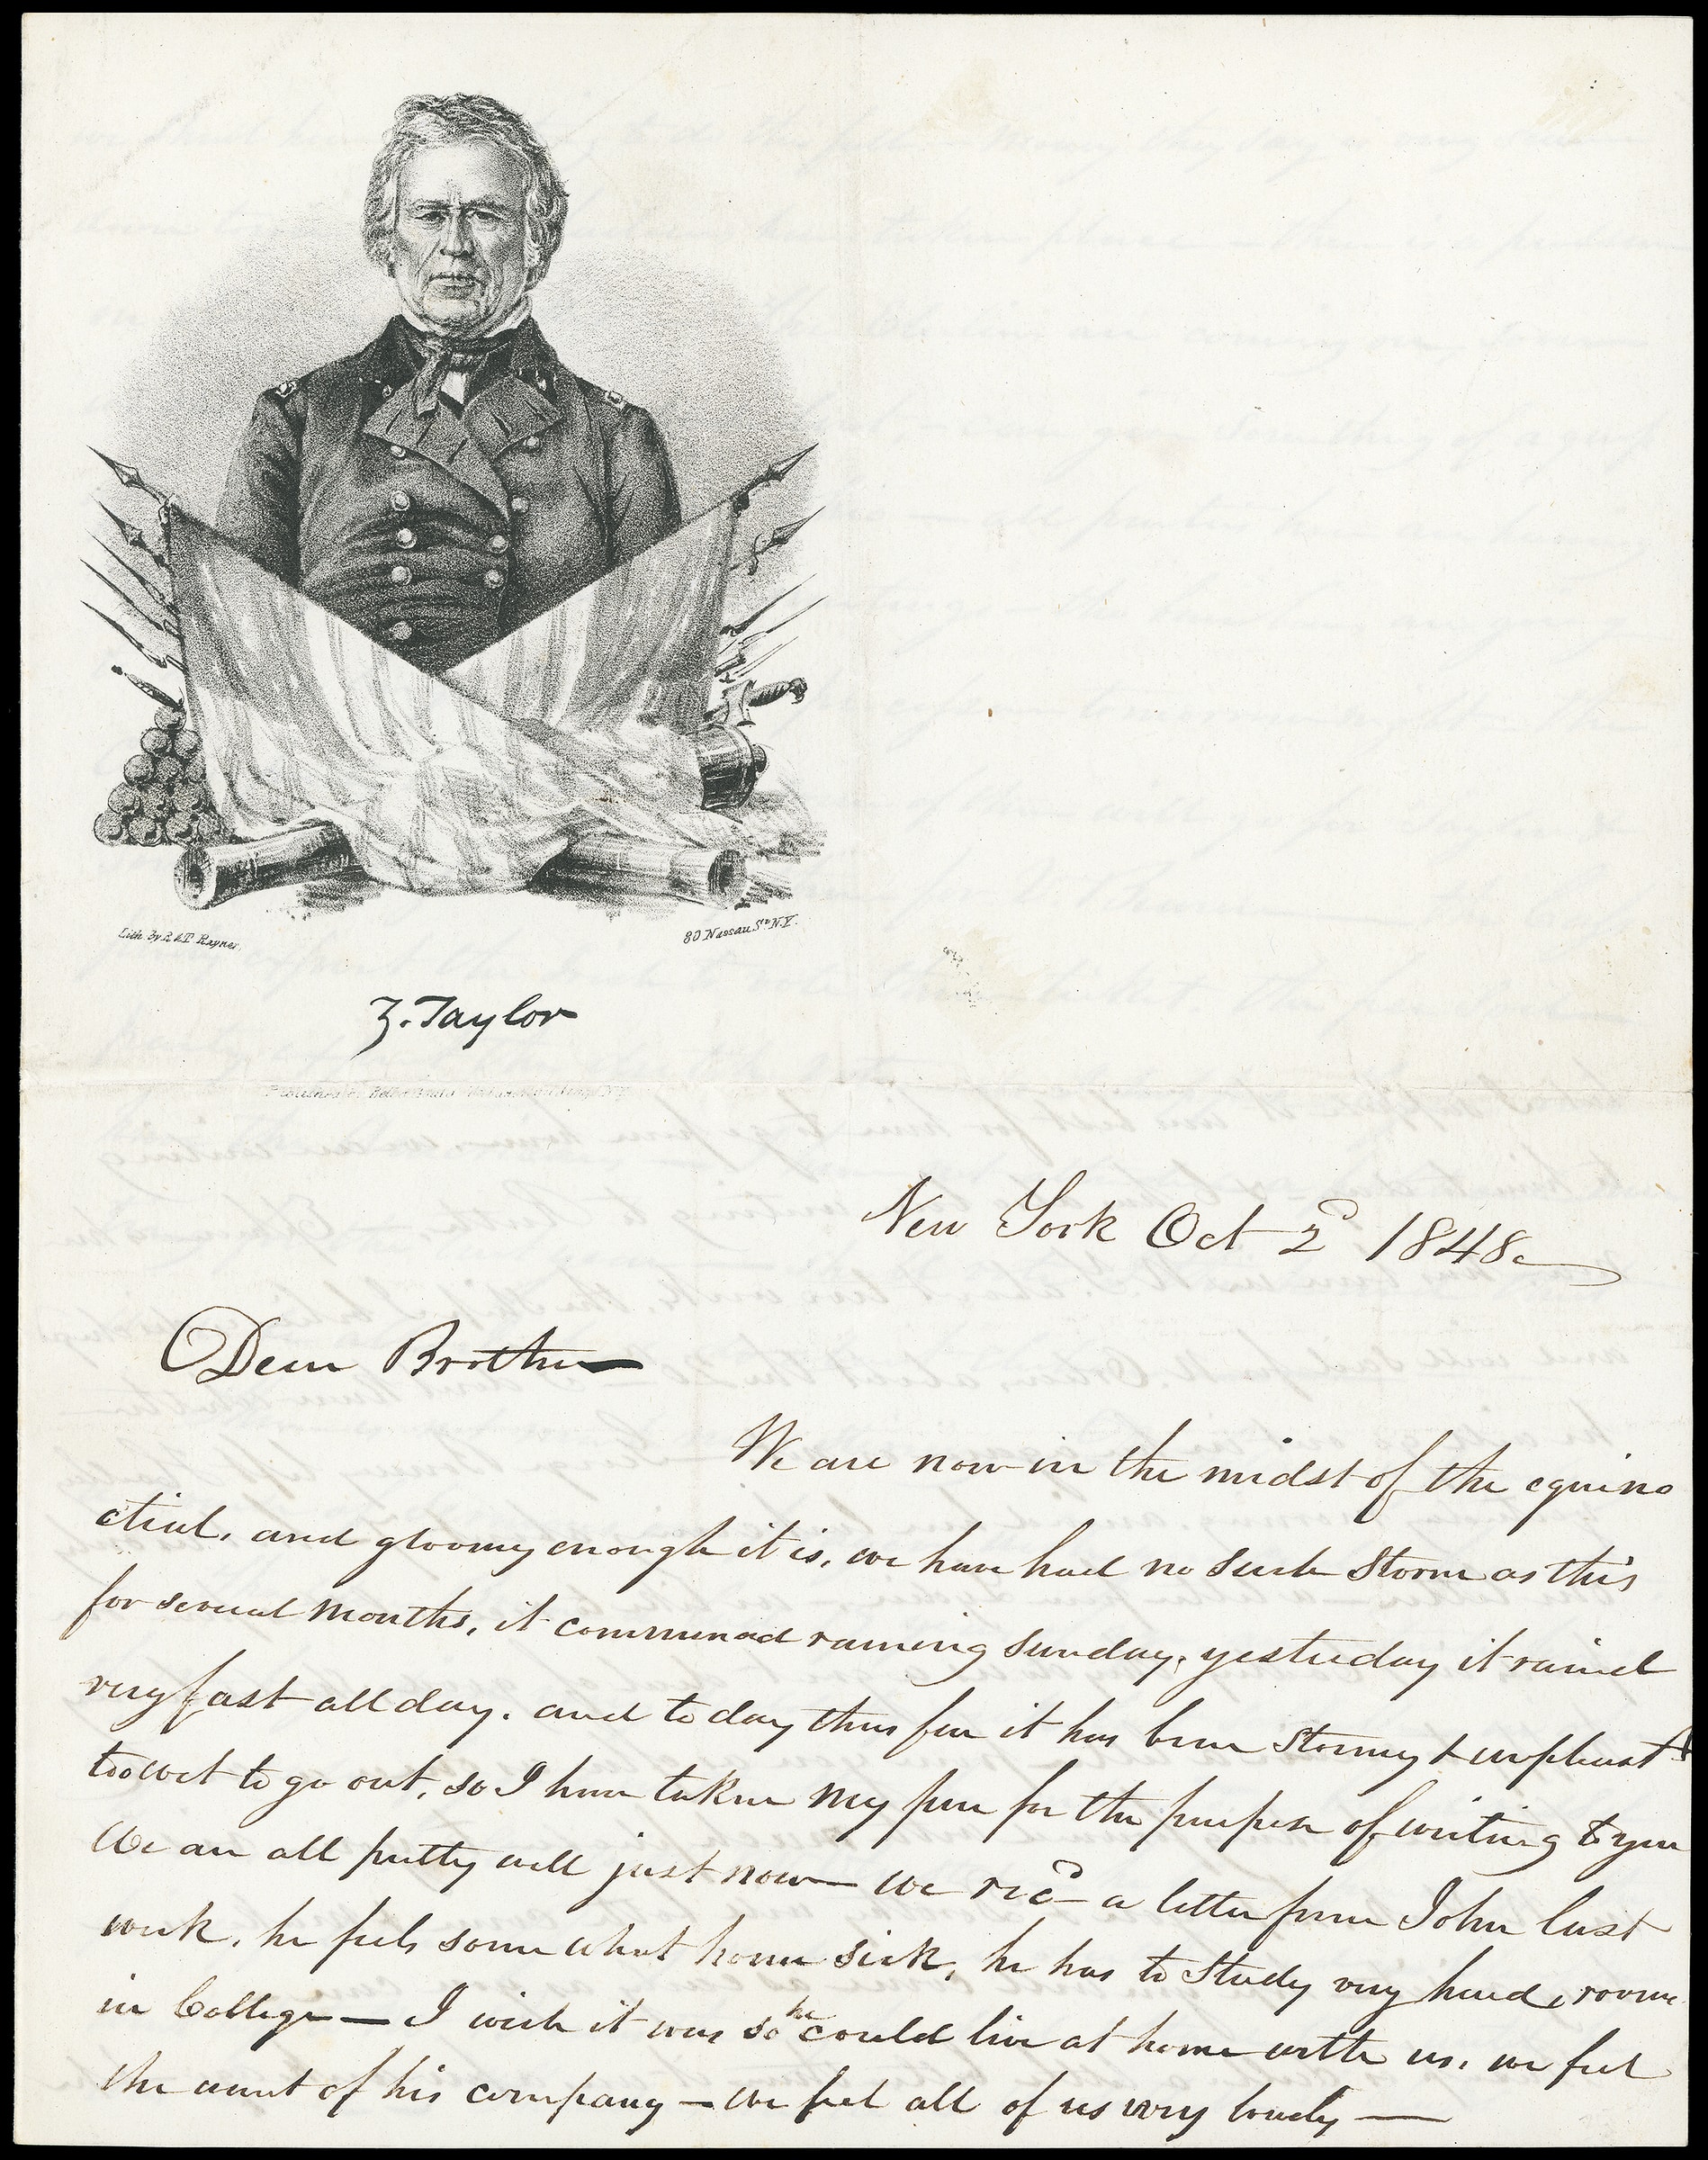 Lith. by R & T Rayner.
80 Nassau St. N.Y.
Z. Taylor
New York Oct 2d 1848.
Dear Brother
We are now in the midst of the equino
ctial, and gloomy enough it is, we have had no such Storm as this
for several months, it commenced raining Sunday, yesterday it rained
very fast all day. and to day thus far it has been Stormy & unpleasant
too wet to go out, so I have taken my pen for the purpose of writing to you
We are all pretty well just now — we recd a letter from John last
week, he feels some what home sick, he has to Study very hard, rooms
in College — I wish it was so he could live at home with us, we feel
the want of his company — we feel all of us very lonely —